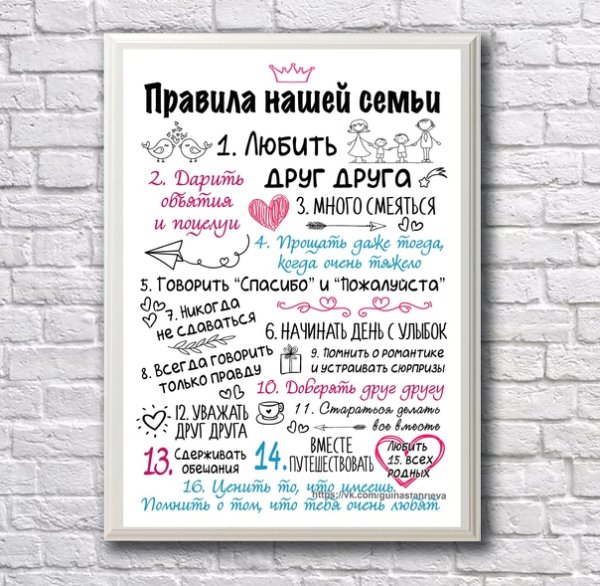 Правила нашей семьи
1. Любить
друг друга
2. Дарить
объятия
и поцелуи
3. много смеяться
4. Прощать даже тогда,
когда очень тяжело
5. Говорить “Спасибо” и “Пожалуйста”
7. Никогда
не сдаваться
6. начинать день с улыбок
8. Всегда говорить
только правду
9. помнить о романтике
и устраивать сюрпризы
10. Доверять друг другу
12. уважать
друг друга
11. Стараться делать
все вместе
13. Сдерживать
обещания
14. вместе
путешествовать
Любить
15. всех
родных
16. Ценить то, что имеешь.
Помнить о том, что тебя очень любят